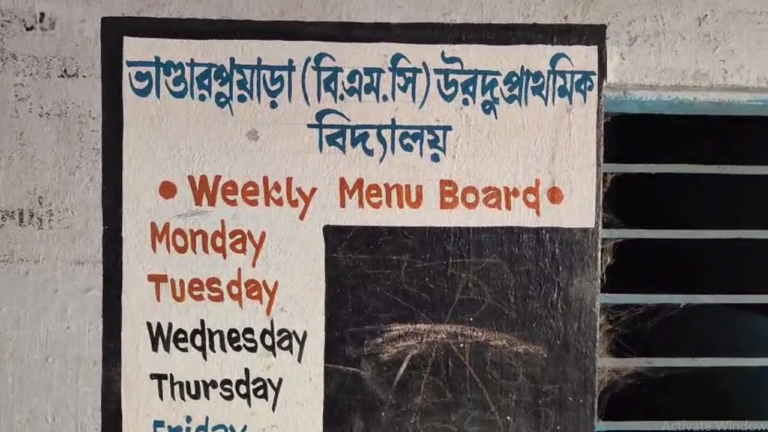 ভাণ্ডারপুয়াড়া (বি.এম.সি) উরদু প্রাথমিক
বিদ্যালয়
• Weekly Menu Board •
Monday
Tuesday
Wednesday
Thursday
Friday
Activate Window